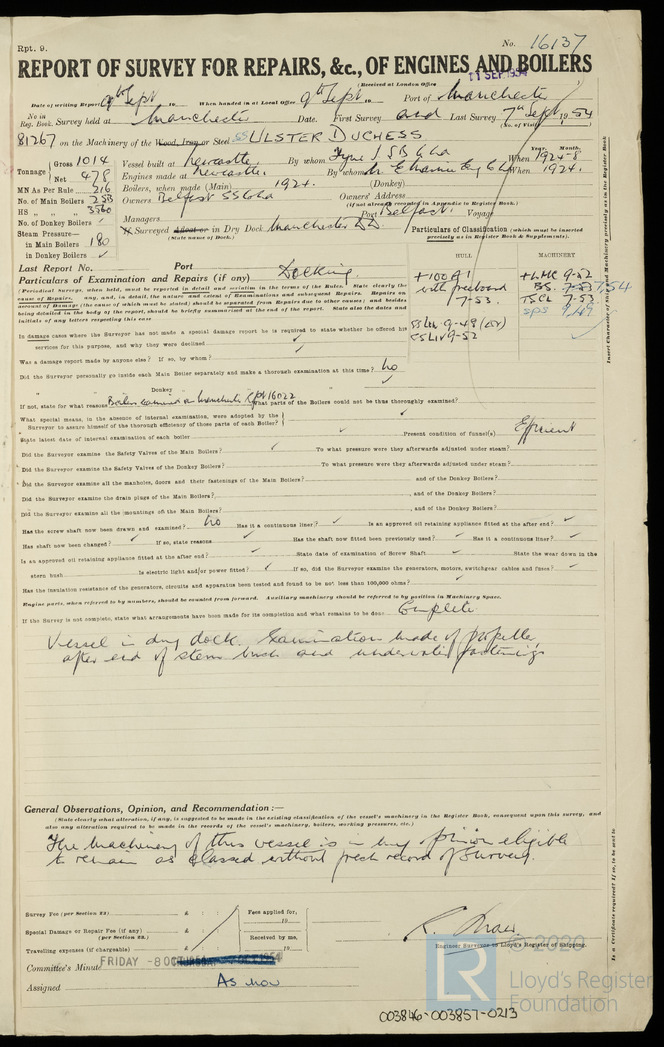 Rpt. 9.
No. 16137
REPORT OF SURVEY FOR REPAIRS, &c., OF ENGINES AND BOILERS
(Received at London Office 11 SEP 1954
Date of writing Report 9th Sept 19 When handed in at Local Office 9th Sept 19 Port of Manchester
No. in Reg. Book. Survey held at Manchester Date. First Survey and Last Survey 7th Sept 1954
(No. of Visits
81267 on the Machinery of the Wood, Iron or Steel SS ULSTER DUCHESS
Tonnage Gross 1014 Vessel built at Newcastle By whom Tyne I SB Co Ltd When 1924-8
Year. Month.
Net 478 Engines made at Newcastle. By whom When 1924.
MN As Per Rule 216 Boilers, when made (Main) 1924. (Donkey)
No. of Main Boilers 2SB Owners Belfast SS Co Ltd Owners' Address
(if not already recorded in Appendix to Register Book.)
HS " " 3560
No. of Donkey Boilers ✓ Managers Port Belfast. Voyage
Steam Pressure—
in Main Boilers 180 If Surveyed Afloat or in Dry Dock Manchester DD.
(State name of Dock.)
in Donkey Boilers ✓
Particulars of Classification (which must be inserted precisely as in Register Book & Supplements).
Last Report No. Port
HULL MACHINERY
Particulars of Examination and Repairs (if any) Docking.
+100A1 +LMC 9-52
with freeboard BS. 7-53 7,54
7-53. TSCL 7-53
sps 9,49
SS LIV 9-52
In damage cases where the Surveyor has not made a special damage report he is required to state whether he offered his
services for this purpose, and why they were declined ✓
Was a damage report made by anyone else? If so, by whom? ✓
Did the Surveyor personally go inside each Main Boiler separately and make a thorough examination at this time? No
" " Donkey " " ✓
If not, state for what reasons Boilers examined at Manchester Rpt 16022 What parts of the Boilers could not be thoroughly examined?
What special means, in the absence of internal examination, were adopted by the
Surveyor to assure himself of the thorough efficiency of those parts of each Boiler? ✓
State latest date of internal examination of each boiler Present condition of funnel(s) Efficient
Did the Surveyor examine the Safety Valves of the Main Boilers? ✓ To what pressure were they afterwards adjusted under steam?
Did the Surveyor examine the Safety Valves of the Donkey Boilers? To what pressure were they afterwards adjusted under steam?
Did the Surveyor examine all the manholes, doors and their fastenings of the Main Boilers? and of the Donkey Boilers?
Did the Surveyor examine the drain plugs of the Main Boilers? , and of the Donkey Boilers?
Did the Surveyor examine all the mountings of the Main Boilers? , and of the Donkey Boilers?
Has the screw shaft now been drawn and examined? No Has it a continuous liner? ✓ Is an approved oil retaining appliance fitted at the after end? ✓
Has shaft now been changed? ✓ If so, state reasons ✓ Has the shaft now fitted been previously used? ✓ Has it a continuous liner? ✓
Is an approved oil retaining appliance fitted at the after end? ✓ State date of examination of Screw Shaft ✓ State the wear down in the
stern bush Is electric light and/or power fitted? ✓ If so, did the Surveyor examine the generators, motors, switchgear cables and fuses? ✓
Has the insulation resistance of the generators, circuits and apparatus been tested and found to be not less than 100,000 ohms? ✓
Engine parts, when referred to by numbers, should be counted from forward. Auxiliary machinery should be referred to by position in Machinery Space.
If the Survey is not complete, state what arrangements have been made for its completion and what remains to be done Complete
Vessel in dry dock. Examination made of propeller,
after end of stern bush and underwater fastenings
General Observations, Opinion, and Recommendation:—
(State clearly what alteration, if any, is suggested to be made in the existing classification of the vessel's machinery in the Register Book, consequent upon this survey, and
also any alteration required to be made in the records of the vessel's machinery, boilers, working pressures, etc.)
The machinery of this vessel is in my opinion eligible
to remain as classed without fresh record of survey.
Survey Fee (per Section 22) £ : : Fees applied for,
19
Special Damage or Repair Fee (if any)
(per Section 22.) £ : : Received by me,
Travelling expenses (if chargeable) £ : : 19
Engineer Surveyor to Lloyd's Register of Shipping.
Committee's Minute FRIDAY -8 OCT 1954
Assigned As now
© 2020
LR
Lloyd's Register
Foundation
003846-003857-0213